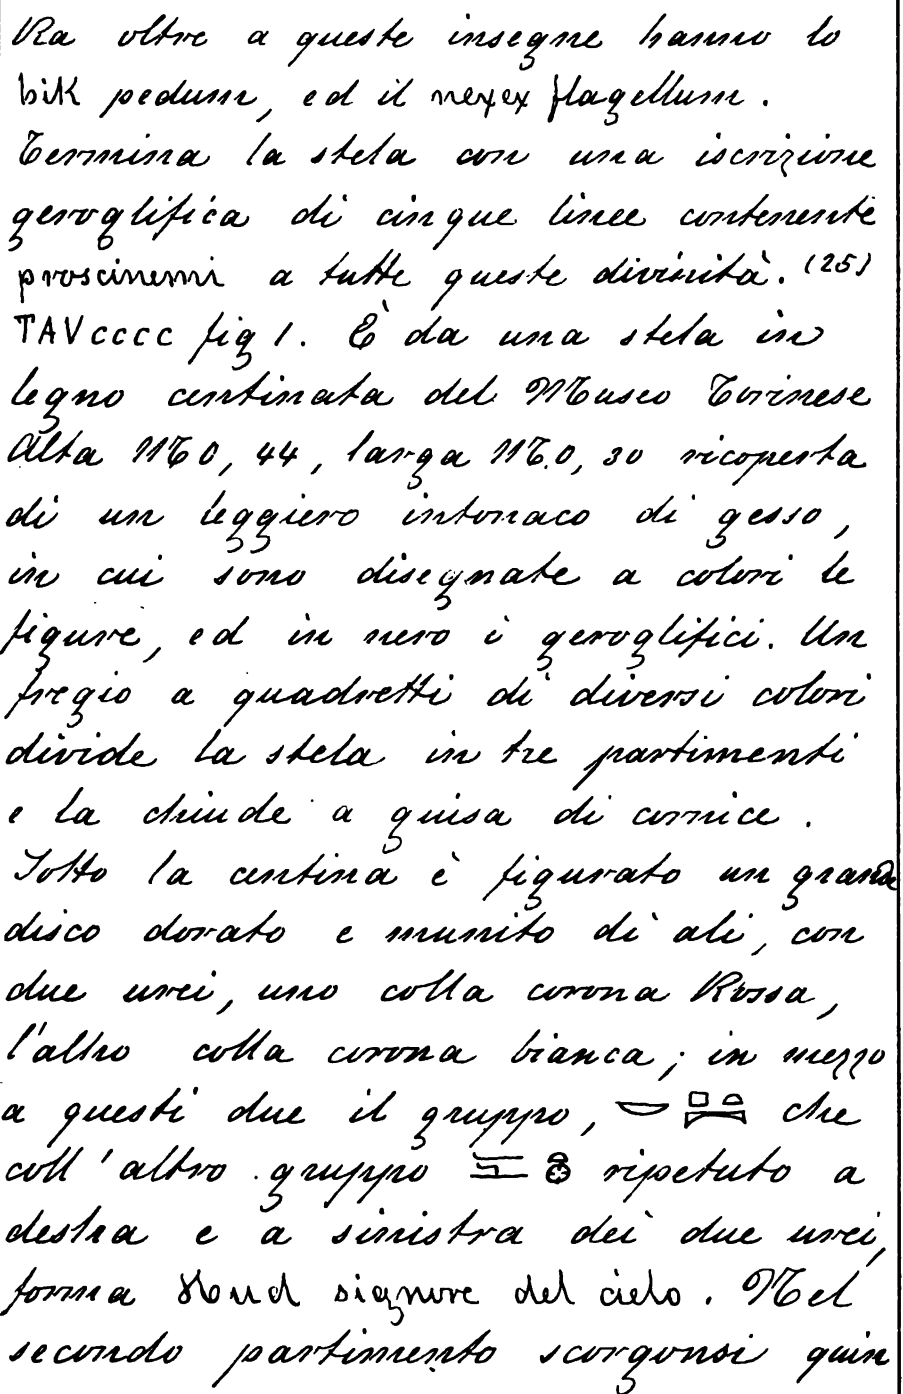 Ra oltre a queste insegne hanno lo
bik pedum, ed il nexex flagellum.
Termina la stela con una iscrizione
geroglifica di cinque linee contenente
proscinemi a tutte queste divinità. (25)
TAV cccc fig 1. È da una stela in
legno centinata del Museo Torinese
Alta M 0, 44, larga M. 0, 30 ricoperta
di un leggiero intonaco di gesso,
in cui sono disegnate a colori le
figure, ed in nero i geroglifici. Un
fregio a quadretti di diversi colori
divide la stela in tre partimenti
e la chiude a guisa di cornice.
Sotto la centina è figurato un grande
disco dorato e munito di ali, con
due urei, uno colla corona Rossa,
l'altro colla corona bianca; in mezzo
a questi due il gruppo, che
coll'altro gruppo ripetuto a
destra e a sinistra dei due urei,
forma Houd signore del cielo. Nel
secondo partimento scorgonsi quin